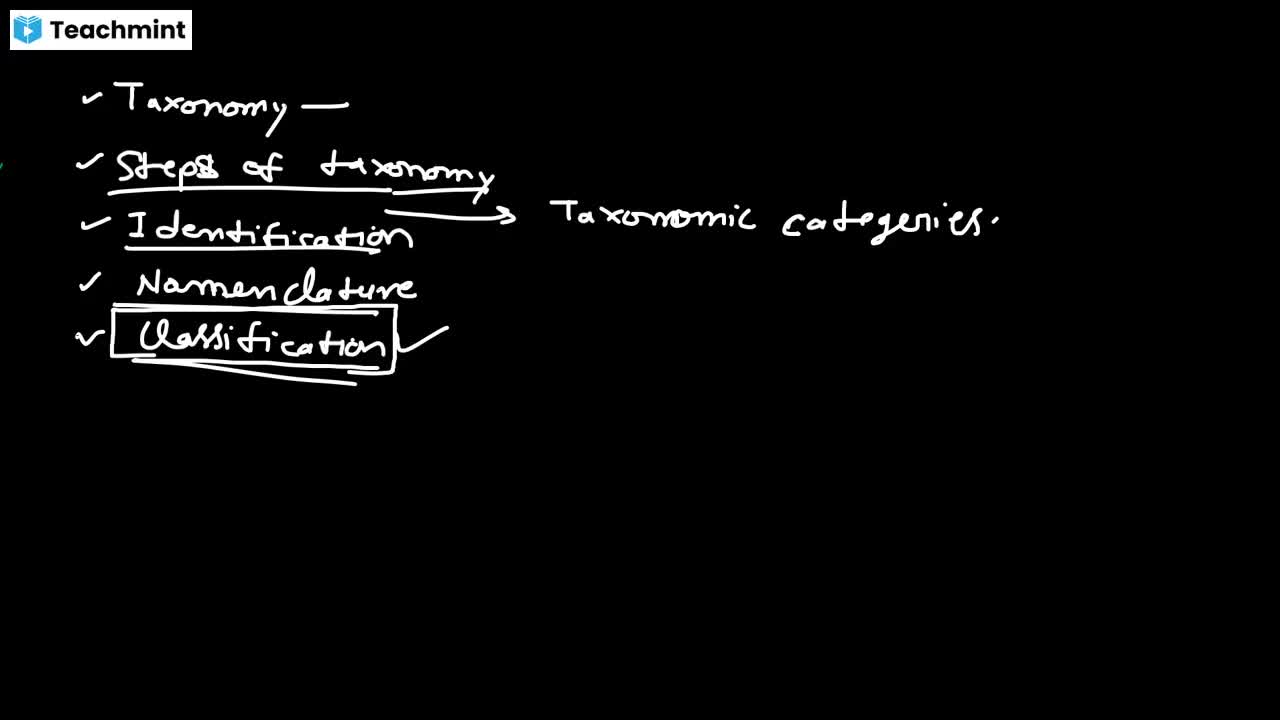 Teachmint
Taxonomy —
Steps of taxonomy
Identification → Taxonomic categeries.
Nomenclature
Classification